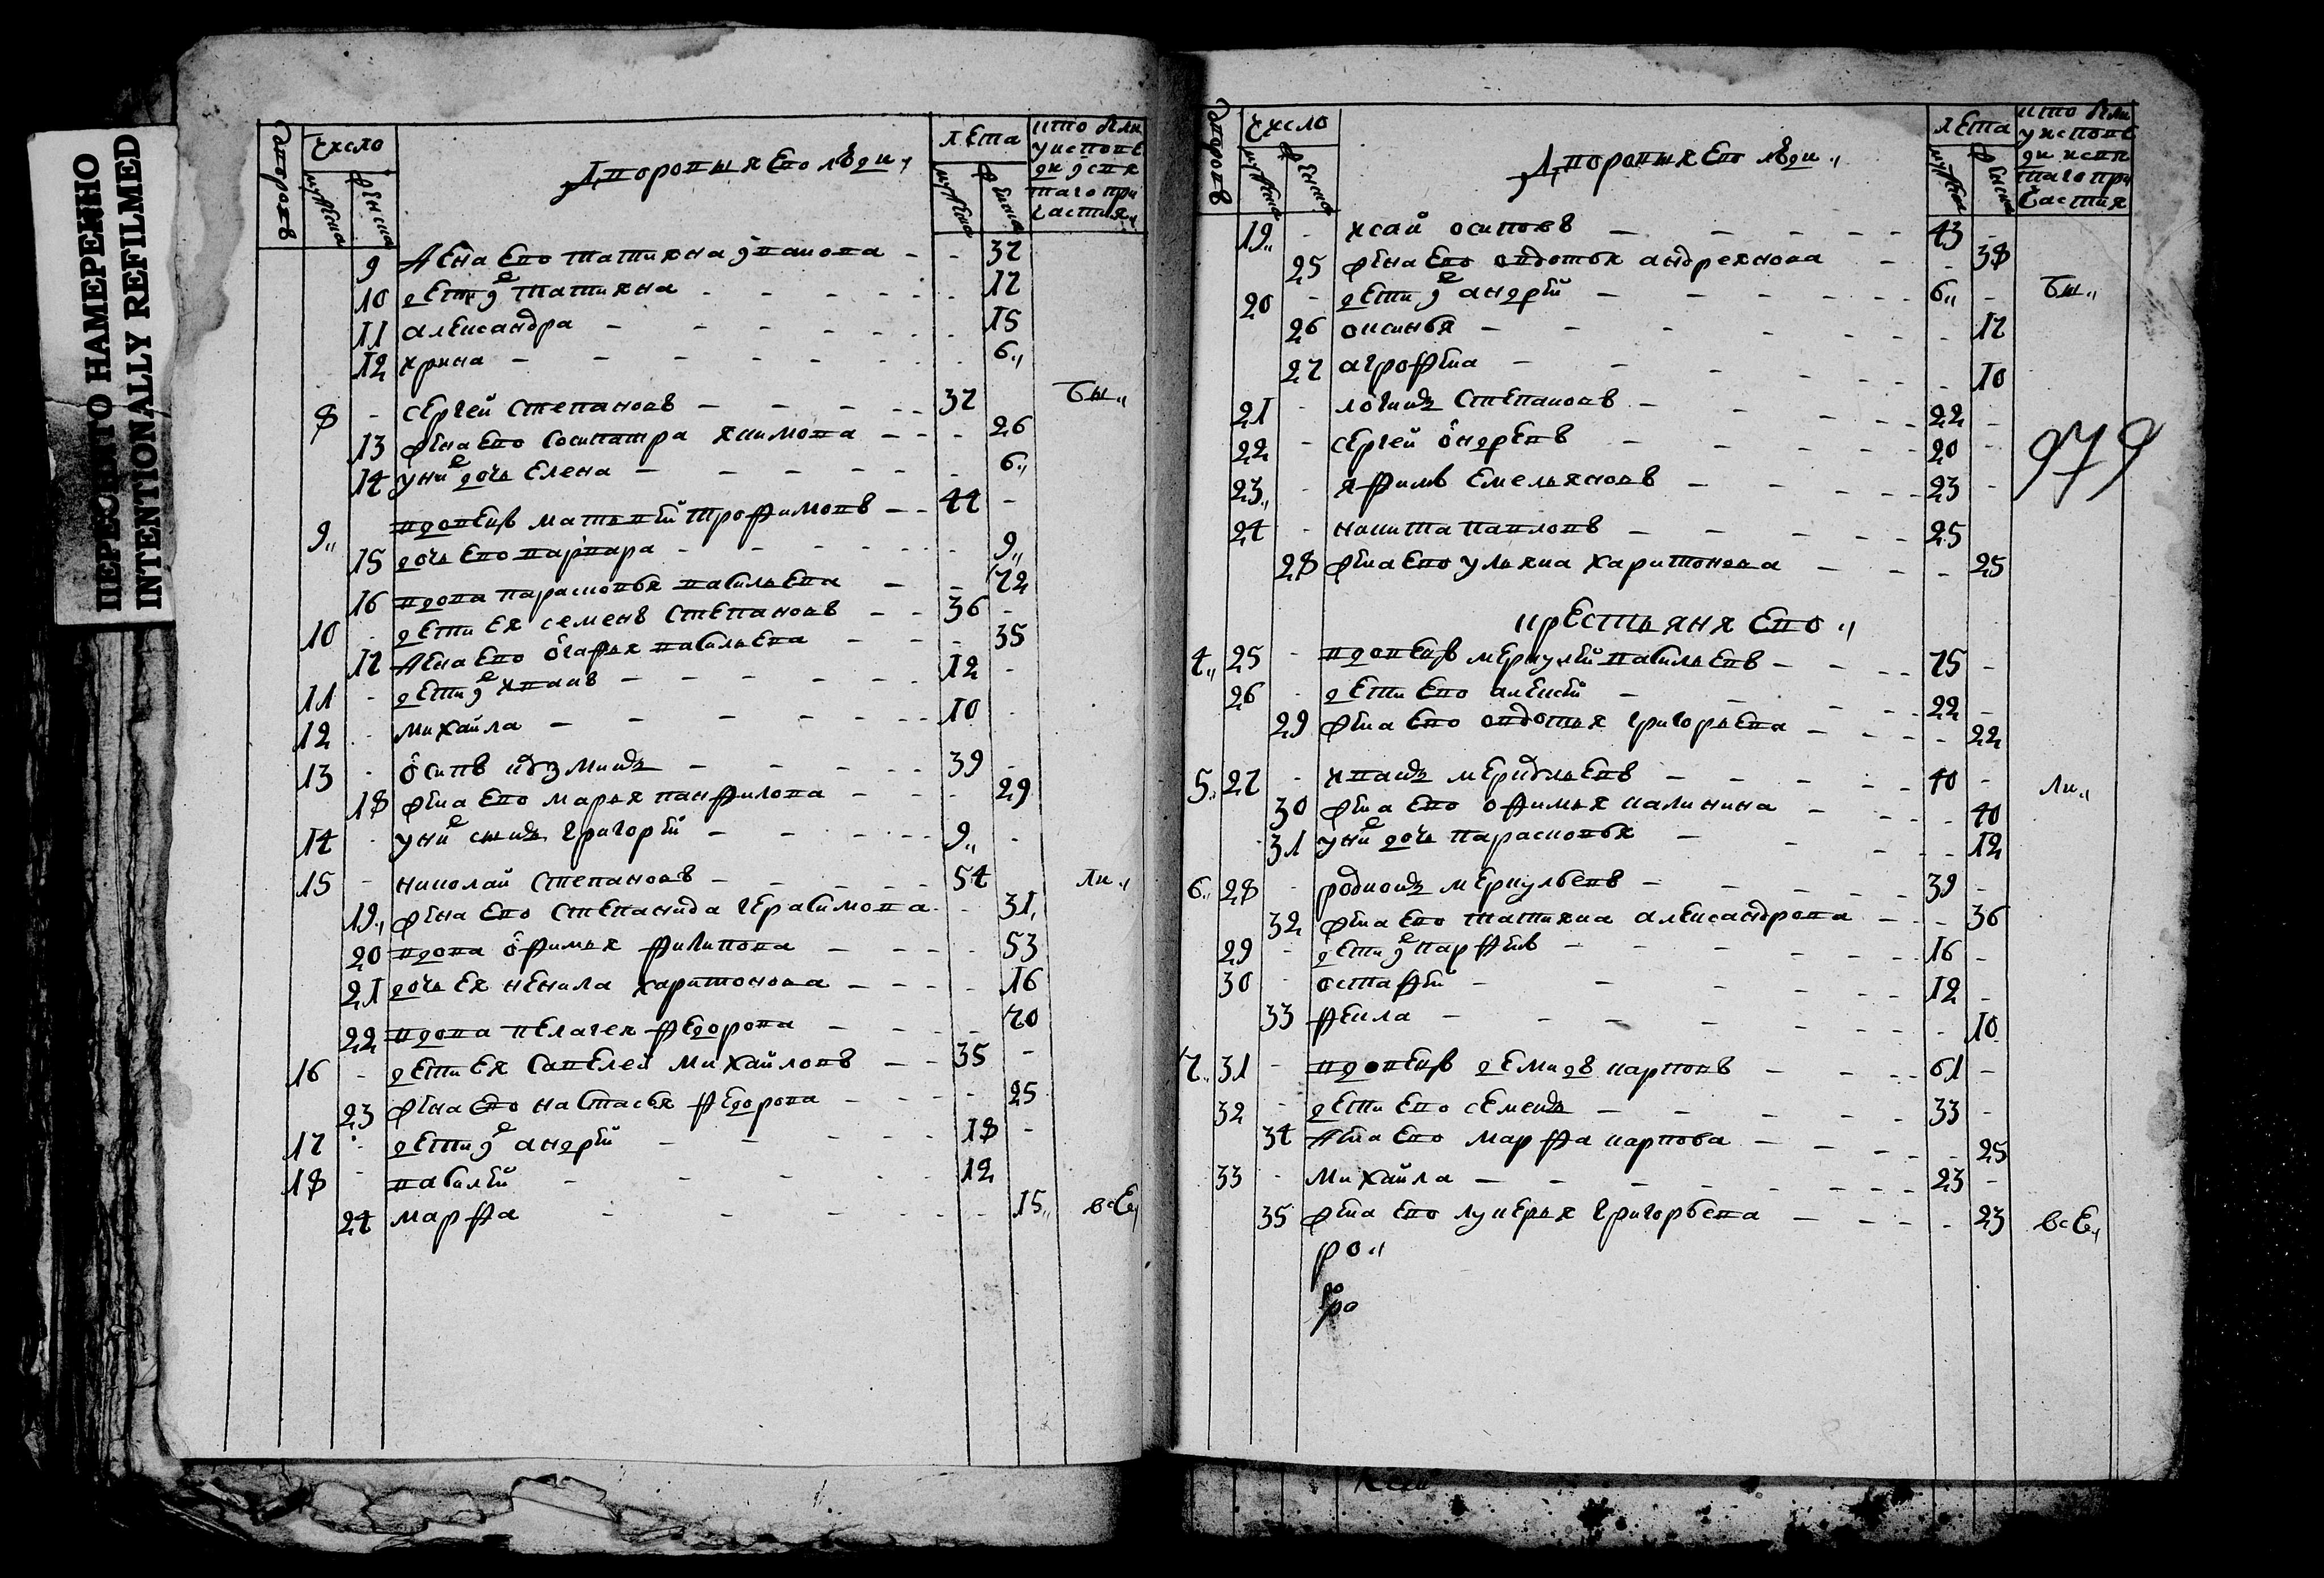 ПЕРЕСНЯТО НАМЕРЕННО
INTENTIONALLY REFILMED
дворовъ
число
мужеска
женска
Дворовыя ево люди
лета
мужеска
женска
кто былъ
у исповѣ
ди и свя
таго при
частия
9 жена ево татияна иванова - - 37
10 дети ихъ татияна - - 17
11 александра - - 15
12 ирина - - 6
8 - сергей степановъ - - 37 бы
13 жена ево сосипатра якимова - - 26
14 у нихъ дочь елена - - 6
9 вдовецъ матвей трофимовъ - - 44 -
15 дочь ево варвара - - 9
16 вдова парасковья васильева - - 72
10 - дети ея семенъ степановъ - - 36 -
17 жена ево агафья васильева - - 35
11 - дети ихъ иванъ - - 12 -
12 - михайла - - 10 -
13 - осипъ кузминъ - - 39 -
18 жена ево марья панфилова - - 29
14 - у нихъ сынъ григорей - - 9 -
15 - николай степановъ - - 54 ли
19 жена ево степанида герасимова - 31
20 вдова офимья филипова - - 53
21 дочь ея ненила харитонова - - 16
22 вдова пелагея федорова - - 70
16 - дети ея савелей михайловъ - - 35 -
23 жена ево настасья федорова - - 25
17 - дети ихъ андрей - - 18 -
18 - василей - - 12
24 марфа - - 15 все
дворовъ
число
мужеска
женска
Дворовыя ево люди
лета
мужеска
женска
кто былъ
у исповѣ
ди и свя
таго при
частия
19 - исай осиповъ - - 43 -
25 жена ево овдотья андреянова - - 38
20 - дети ихъ андрей - - 6 - бы
26 аксинья - - 17
27 агрофена - - 10
21 - логинъ степановъ - - 22 -
22 - сергей андреевъ - - 20 -
979
23 - яфимъ емельяновъ - - 23 -
24 - никита павловъ - - 25
28 жена ево ульяна харитонова - - 25
крестьяня ево
4 25 - вдовецъ меркулей васильевъ - - 75 -
26 - дети ево алексей - - 22 -
29 жена ево овдотья григорьева - - 22
5 27 - иванъ меркульевъ - - 40 - ли
30 жена ево офимья калинина - - 40
31 у нихъ дочь парасковья - - 12
6 28 - родионъ меркульевъ - - 39 -
32 жена ево татияна александрова - - 36
29 - дети ихъ парфенъ - - 16 -
30 - остафей - - 12 -
33 фекла - - 10
7 31 - вдовецъ демидъ карповъ - - 61 -
32 - дети ево семенъ - - 33 -
34 жена ево марфа карпова - - 25
33 - михайла - - 23 -
35 жена ево лукерья григорьева - - 23 все
ро